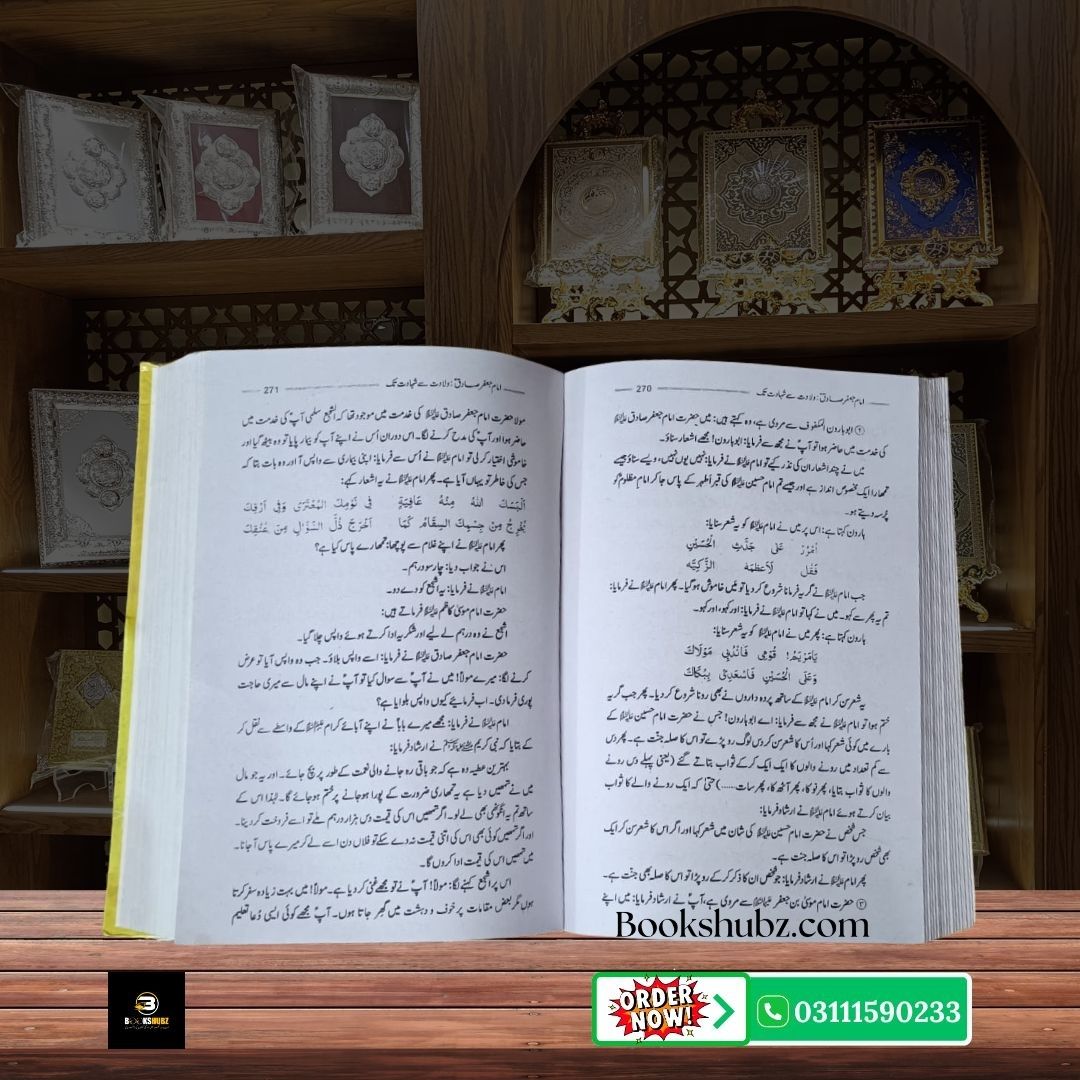 امام جعفر صادقؑ: ولادت سے شہادت تک
270
② ابوہارون المکفوف سے مروی ہے، وہ کہتے ہیں: میں حضرت امام جعفر صادق علیہ السلام
کی خدمت میں حاضر ہوا تو آپؑ نے مجھ سے فرمایا: ابوہارون! مجھے اشعار سناؤ۔
میں نے چند اشعار ان کی نذر کیے تو امام علیہ السلام نے فرمایا: نہیں یوں نہیں، ویسے سناؤ جیسے
تمہارا ایک مخصوص انداز ہے اور جیسے تم امام حسین علیہ السلام کی قبر اطہر کے پاس جا کر امام مظلومؑ کو
پُرسہ دیتے ہو۔
ہارون کہتا ہے: اس پر میں نے امام علیہ السلام کو یہ شعر سنایا:
اُمْرُرْ عَلٰی جَدَثِ الْحُسَیْنِ
فَقُلْ لِاَعْظُمِهِ الزَّكِيَّه
جب امام علیہ السلام نے گریہ فرمانا شروع کر دیا تو میں خاموش ہوگیا۔ پھر امام علیہ السلام نے فرمایا:
تم یہ پھر سے کہو۔ میں نے کہا تو امام علیہ السلام نے فرمایا: اور کہو، اور کہو۔
ہارون کہتا ہے: پھر میں نے امام علیہ السلام کو یہ شعر سنایا:
يَامَرْيَمُ! قُوْمِي فَانْدُبِي مَوْلَاكِ
وَعَلَى الْحُسَيْنِ فَاسْعَدِيْ بِبُكَاكِ
یہ شعر سن کر امام علیہ السلام کے ساتھ پردہ داروں نے بھی رونا شروع کر دیا۔ پھر جب گریہ
ختم ہوا تو امام علیہ السلام نے مجھ سے فرمایا: اے ابوہارون! جس نے حضرت امام حسین علیہ السلام کے
بارے میں کوئی شعر کہا اور اُس کا شعر سن کر دس لوگ رو پڑے تو اس کا صلہ جنت ہے۔ پھر دس
سے کم تعداد میں رونے والوں کا ایک ایک کر کے ثواب بتاتے گئے (یعنی پہلے دس رونے
والوں کا ثواب بتایا، پھر نو کا، پھر آٹھ کا، پھر سات......) حتیٰ کہ ایک رونے والے کا ثواب
بیان کرتے ہوئے امام علیہ السلام نے ارشاد فرمایا:
جس شخص نے حضرت امام حسین علیہ السلام کی شان میں شعر کہا اور اگر اس کا شعر سن کر ایک
بھی شخص رو پڑا تو اس کا صلہ جنت ہے۔
پھر امام علیہ السلام نے ارشاد فرمایا: جو شخص ان کا ذکر کر کے رو پڑا تو اس کا صلہ بھی جنت ہے۔
③ حضرت امام موسیٰ بن جعفر علیہما السلام سے مروی ہے، آپؑ نے ارشاد فرمایا: میں اپنے
امام جعفر صادقؑ: ولادت سے شہادت تک
271
مولا حضرت امام جعفر صادق علیہ السلام کی خدمت میں موجود تھا کہ اشجع سلمی آپؑ کی خدمت میں
حاضر ہوا اور آپؑ کی مدح کرنے لگا۔ اس دوران اُس نے اپنے آپؑ کو بیمار پایا تو وہ بیٹھ گیا اور
خاموشی اختیار کر لی تو امام علیہ السلام نے اُس سے فرمایا: اپنی بیماری سے واپس آ اور وہ بات بتا کہ
جس کی خاطر تو یہاں آیا ہے۔ پھر امام علیہ السلام نے یہ اشعار کہے:
اَلْبَسَكَ اللهُ مِنْهُ عَافِيَةٍ فِي نَوْمِكَ الْمُعْتَرٰى وَفِي اَرَقِكَ
يُخْرِجُ مِنْ جِسْمِكَ السِّقَامُ كَمَا اَخْرَجَ ذُلَّ السُّؤَالِ مِنْ عُنُقِكَ
پھر امام علیہ السلام نے اپنے غلام سے پوچھا: تمہارے پاس کیا ہے؟
اس نے جواب دیا: چار سو درہم۔
امام علیہ السلام نے فرمایا: یہ اشجع کو دے دو۔
حضرت امام موسیٰ کاظم علیہ السلام فرماتے ہیں:
اشجع نے وہ درہم لے لیے اور شکریہ ادا کرتے ہوئے واپس چلا گیا۔
حضرت امام جعفر صادق علیہ السلام نے فرمایا: اسے واپس بلاؤ۔ جب وہ واپس آیا تو عرض
کرنے لگا: میرے مولاؑ! میں نے آپؑ سے سوال کیا تو آپؑ نے اپنے مال سے میری حاجت
پوری فرما دی۔ اب فرمایئے کیوں واپس بلوایا ہے؟
امام علیہ السلام نے فرمایا: مجھے میرے باباؑ نے اپنے آبائے کرام علیہم السلام کے واسطے سے نقل کر
کے بتایا کہ نبی کریم صلی اللہ علیہ وآلہ وسلم نے ارشاد فرمایا:
بہترین عطیہ وہ ہے کہ جو باقی رہ جانے والی نعمت کے طور پر بچ جائے۔ اور یہ جو مال
میں نے تمہیں دیا ہے یہ تمہاری ضرورت کے پورا ہوجانے پر ختم ہوجائے گا۔ لہٰذا اس کے
ساتھ تم یہ انگوٹھی بھی لے لو۔ اگر تمہیں اس کی قیمت دس ہزار درہم ملے تو اسے فروخت کر دینا۔
اور اگر تمہیں کوئی بھی اس کی اتنی قیمت نہ دے سکے تو فلاں دن اسے لے کر میرے پاس آ جانا۔
میں تمہیں اس کی قیمت ادا کروں گا۔
اس پر اشجع کہنے لگا: مولاؑ! آپؑ نے تو مجھے غنی کر دیا ہے۔ مولاؑ! میں بہت زیادہ سفر کرتا
ہوں مگر بعض مقامات پر خوف و دہشت میں گھر جاتا ہوں۔ آپؑ مجھے کوئی ایسی دُعا تعلیم
Bookshubz.com
BOOKSHUBZ
ORDER NOW!
03111590233